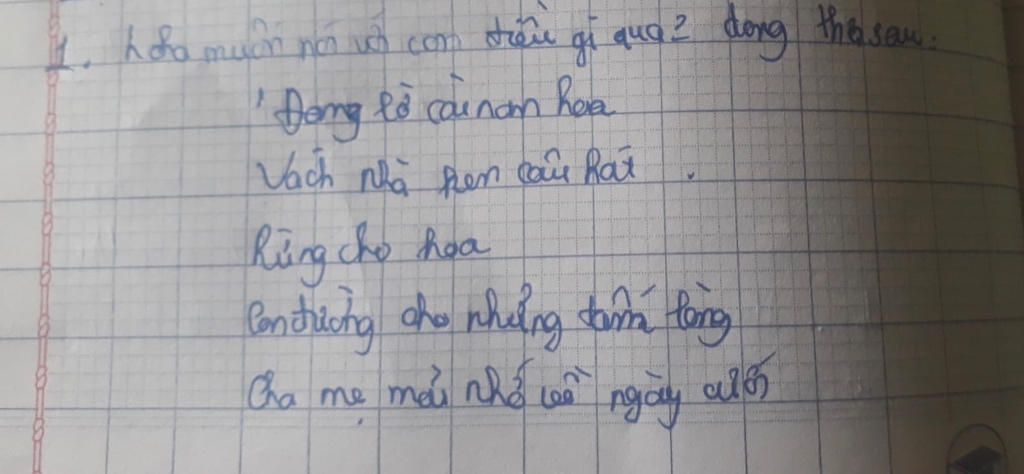 1. cha muốn nói với con điều gì qua 2 dòng thơ sau:
"Đang lờ cài nan hoa
Vách nhà ken câu hát
Rừng cho hoa
Con đường cho những tấm lòng
Cha mẹ mãi nhớ về ngày cưới